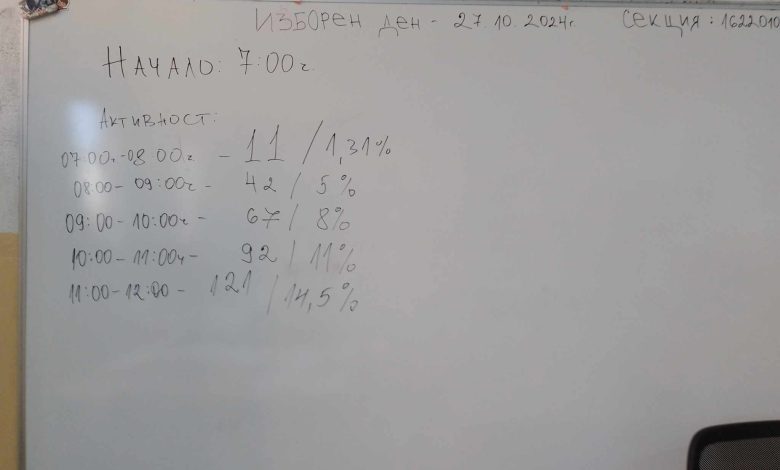 ИЗБОРЕН ДЕН - 27.10.2024г. СЕКЦИЯ: 1622010
НАЧАЛО: 7:00ч.
АКТИВНОСТ:
07:00ч.-08:00ч. - 11 / 1,31%
08:00 - 09:00ч - 42 / 5%
09:00 - 10:00ч - 67 / 8%
10:00 - 11:00ч - 92 / 11%
11:00 - 12:00 - 121 / 14,5%